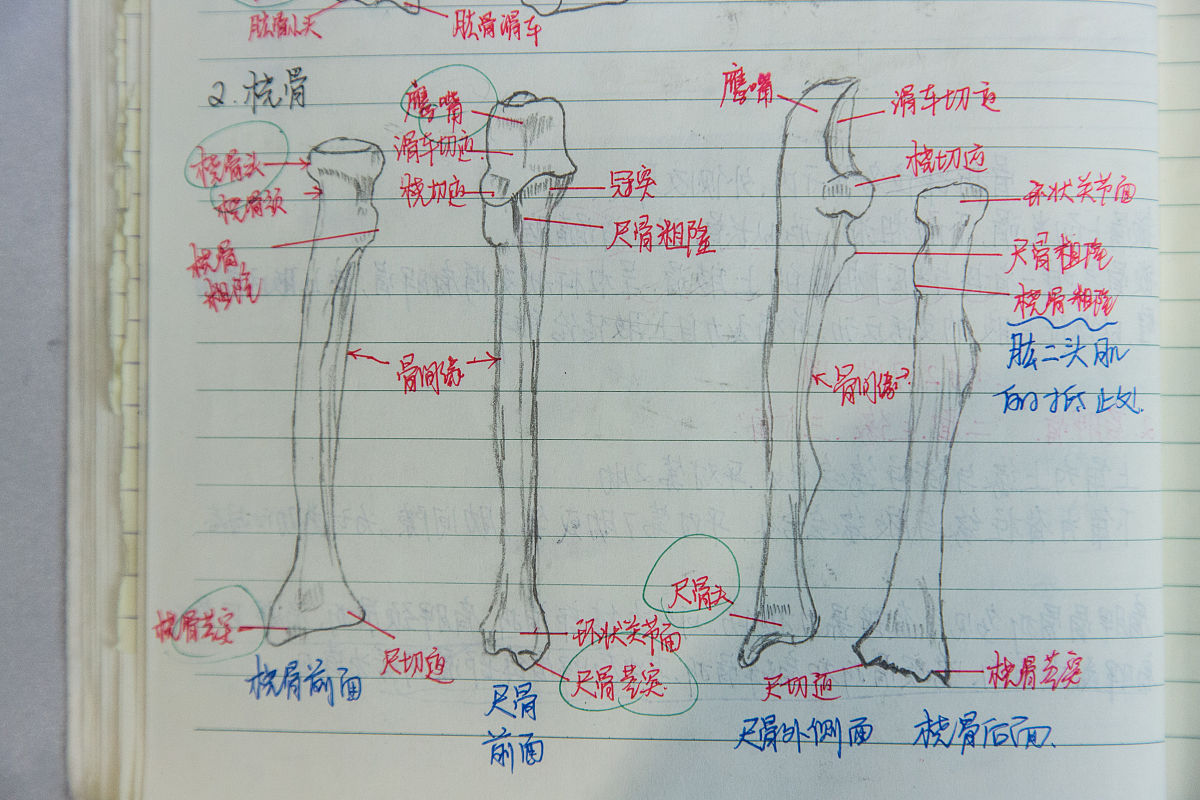 肱骨小头
肱骨滑车
2.桡骨
桡骨头
桡骨颈
桡骨
粗隆
骨间缘
桡骨茎突
尺切迹
桡骨前面
鹰嘴
滑车切迹
桡切迹
冠突
尺骨粗隆
环状关节面
尺骨茎突
尺骨
前面
鹰嘴
滑车切迹
桡切迹
环状关节面
尺骨粗隆
桡骨粗隆
肱二头肌
的抵止处
骨间缘
尺骨头
尺切迹
桡骨茎突
尺骨外侧面
桡骨后面